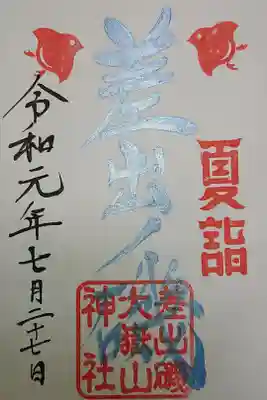 夏詣
差出ノ磯
差出磯
大嶽山
神社
令和元年七月二十七日